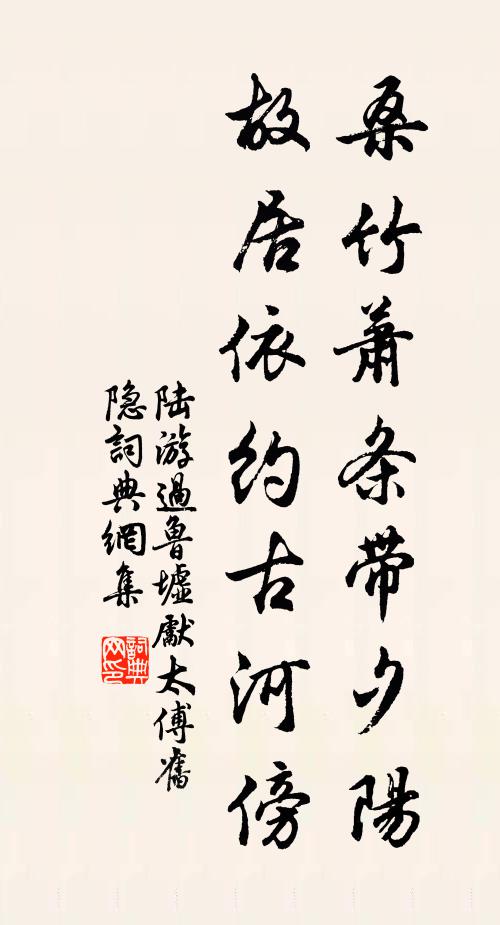 桑竹蕭条帶夕陽
故居依约古河傍
陆游過魯墟獻太傅舊
隐詞典網集
詞典網印